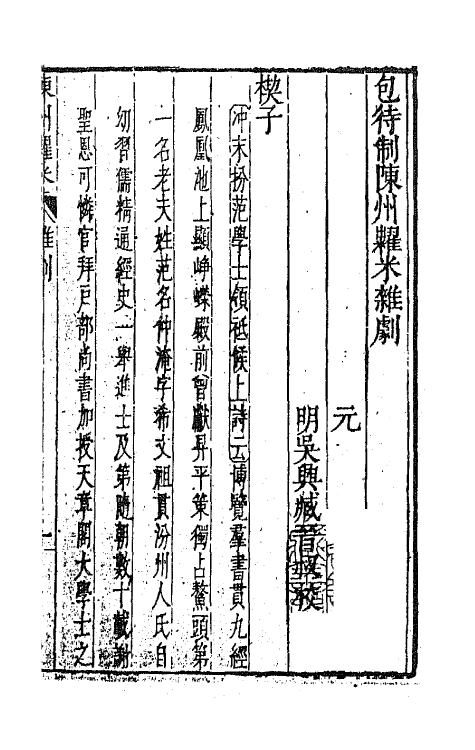 包待制陳州糶米雜劇
元
明吳興臧晉叔校
楔子
冲末扮范學士領祗候上詩云博覽羣書貫九經
鳳凰池上顯崢嶸殿前曾獻昇平策獨占鰲頭第
一名老夫姓范名仲淹字希文祖貫汾州人氏自
幼習儒精通經史一舉進士及第隨朝數十載謝
聖恩可憐官拜戶部尚書加授天章閣大學士之
陳州糶米 雜劇 一